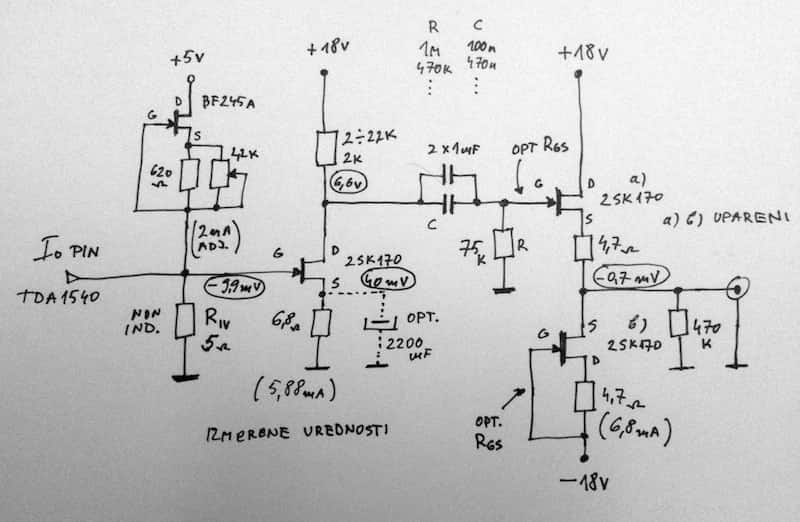 +5V
D
BF245A
G
S
620
Ω
42K
(2mA)
ADJ.
I₀ PIN
TDA1540
NON
IND.
R_IV
5Ω
-9,9mV
+18V
2÷22K
2K
6,6V
D
G
2SK170
S
40mV
6,8Ω
OPT.
2200
mF
(5,88mA)
IZMERENE VREDNOSTI
R C
1M 100n
470K 470n
⋮ ⋮
2×1mF
C
OPT RGS
75
K
R
+18V
G
D
a)
2SK170
S
a) б) UPARENI
4,7Ω
-0,7mV
470
K
S
б)
G
2SK170
D
OPT.
RGS
4,7Ω
(6,8mA)
-18V